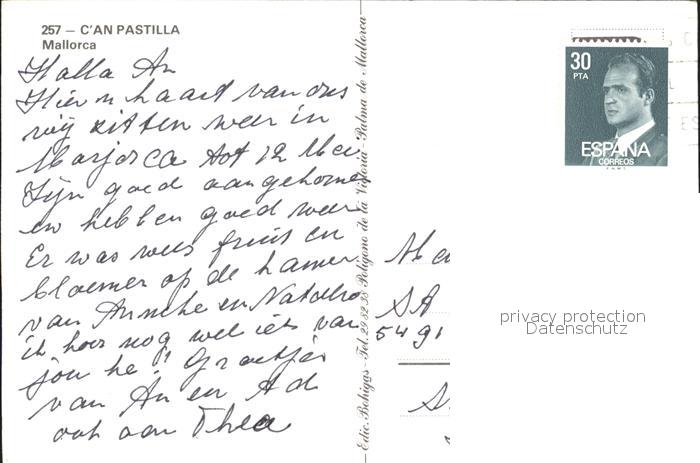 257 – C'AN PASTILLA
Mallorca
Halla An
Hier n kaart van ons
wij zitten weer in
Marjorca tot 12 Mei
Zijn goed aangekomen
en hebben goed weer
Er was weer fruit en
bloemen op de kamer
van Anneke en
ik hoor nog wel iets van
jou he! Groetjes
van An en Ad
ook aan Thea
Edic. Bohigas - Tel. 29 82 36 Polígono de la Victoria - Palma de Mallorca
30
PTA
ESPAÑA
CORREOS
F.N.M.T.
SA
5491
privacy protection
Datenschutz